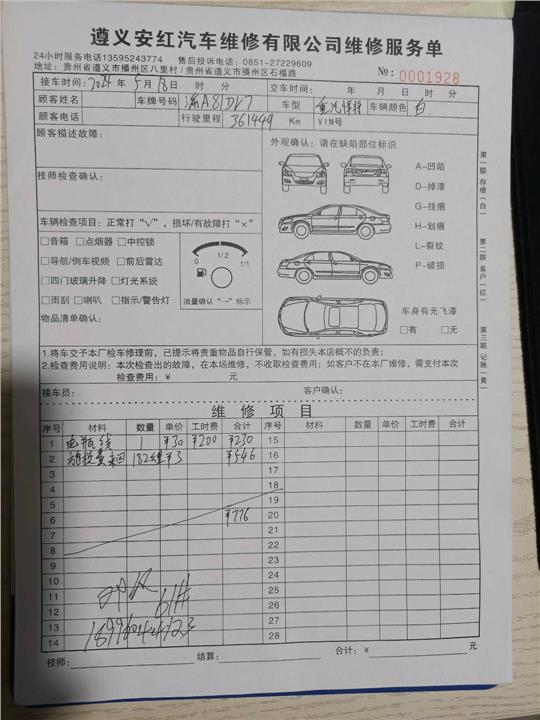 遵义安红汽车维修有限公司维修服务单
24小时服务电话13595243774 售后投诉电话：0851-27229609
地址：贵州省遵义市播州区八里村/贵州省遵义市播州区石榴路
№：0001928
接车时间：2024年5月18日 时 分 交车时间： 年 月 日 时 分
顾客姓名 车牌号码 A81DV7 车型 车辆颜色 白
顾客电话 行驶里程 361449 Km VIN号
顾客描述故障：
外观确认：请在缺陷部位标识
A-凹陷
D-掉漆
G-挂痕
H-划痕
L-裂纹
P-破损
技师检查确认：
车辆检查项目：正常打“√”，损坏/有故障打“×”
□音箱 □点烟器 □中控锁
□导航/倒车视频 □前后雷达
□四门玻璃升降 □灯光系统
□雨刮 □喇叭 □指示/警告灯
0 1/2 1/1
油量确认“→”标示
车身有无飞漆
□有 □无
物品清单确认：
1.将车交予本厂检车修理前，已提示将贵重物品自行保管，如有损失本店概不的负责；
2.检查费用说明：本次检查出的故障，在本场维修，不收取检查费用；如客户不在本厂维修，需支付本次
检查费用：￥ 元
接车员： 客户确认：
维修项目
序号 材料 数量 单价 工时费 合计 序号 材料 数量 单价 工时费 合计
1 电瓶线 1 ¥30 ¥200 ¥230 15
2 182 ¥3 ¥546 16
3 17
4 18
5 19
6 ¥776 20
7 21
8 22
9 23
10 24
11 25
12 26
13 27
14 28
技师： 结算： 合计：￥ 元
第一联 存根（白）
第二联 客户（红）
第三联 记账（黄）